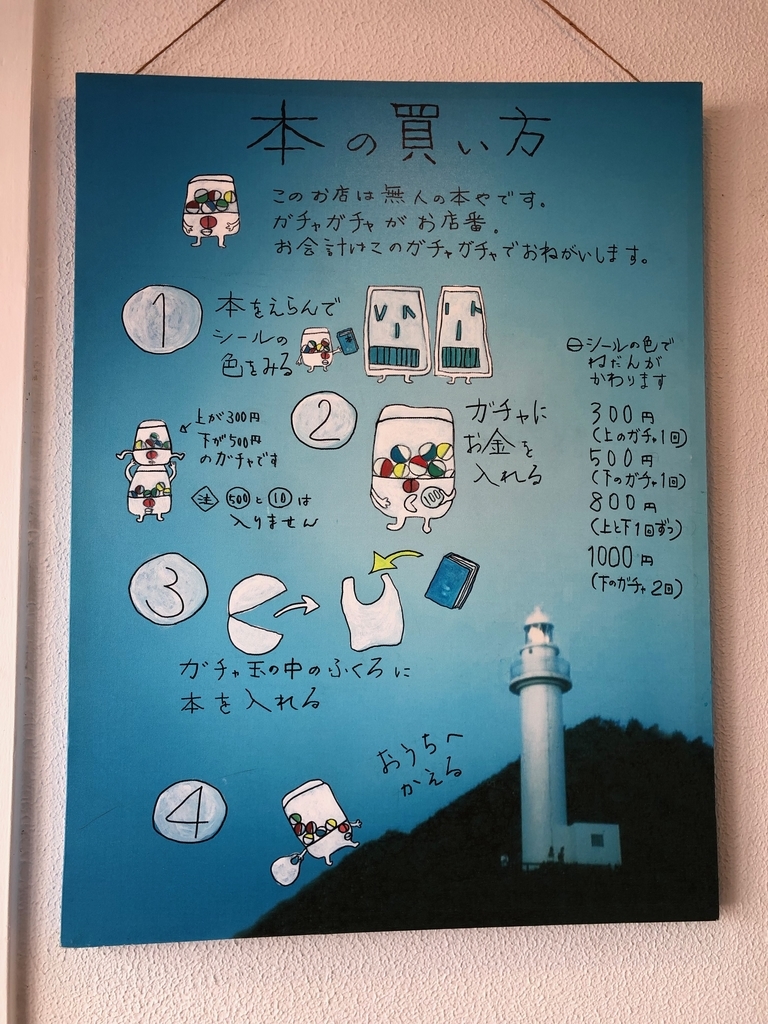 本の買い方
このお店は無人の本やです。
ガチャガチャがお店番。
お会計はこのガチャガチャでおねがいします。
1
本をえらんで
シールの
色をみる
シールの色で
ねだんが
かわります
300円
(上のガチャ1回)
500円
(下のガチャ1回)
800円
(上と下1回ずつ)
1000円
(下のガチャ2回)
2
ガチャに
お金を
入れる
100
上が300円
下が500円
のガチャです
注 500と10は
入りません
3
ガチャ玉の中のふくろに
本を入れる
4
おうちへ
かえる